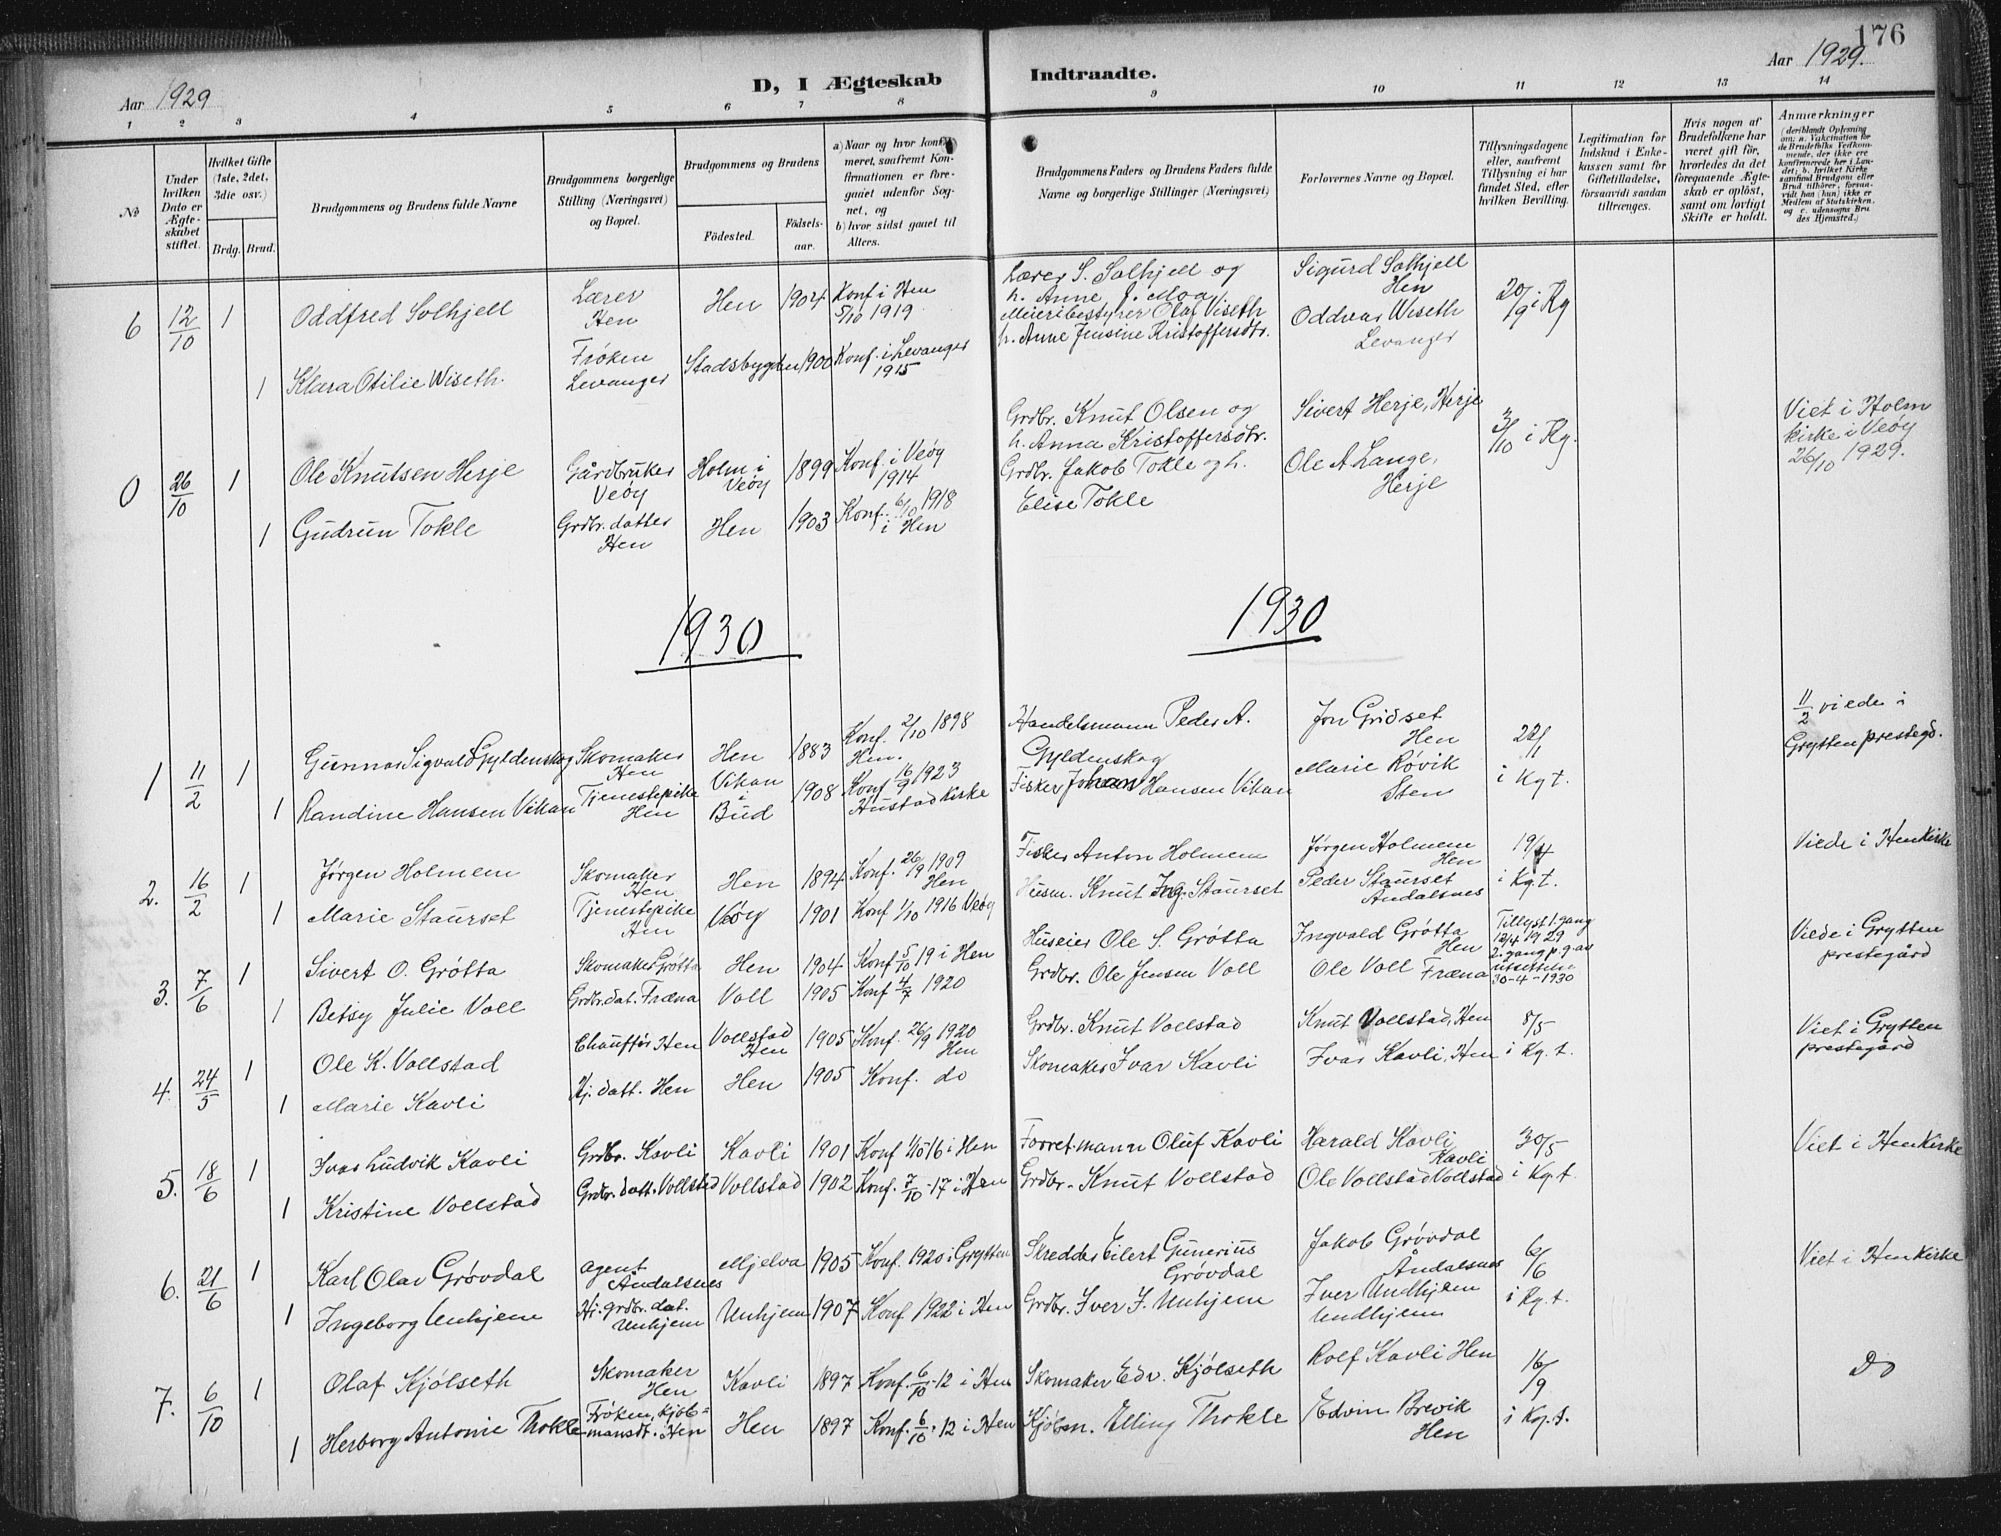 176
Aar 1929
D, I Ægteskab
Indtraadte.
Aar 1929.
1 2 3 4 5 6 7 8 9 10 11 12 13 14
No
Under hvilken Dato er Ægteskabet stiftet.
Hvilket Gifte (1ste, 2det, 3die osv.)
Brdg. Brud.
Brudgommens og Brudens fulde Navne
Brudgommens borgerlige Stilling (Næringsvei) og Bopæl.
Brudgommens og Brudens
Födested. Födselsaar.
a) Naar og hvor konfirmeret, saafremt Konfirmationen er foregaaet udenfor Sognet, og
b) hvor sidst gaaet til Alters.
Brudgommens Faders og Brudens Faders fulde Navne og borgerlige Stillinger (Næringsvei)
Forlovernes Navne og Bopæl.
Tillysningsdagene eller, saafremt Tillysning ei har fundet Sted, efter hvilken Bevilling.
Legitimation for Indskud i Enkekassen samt for Giftetilladelse, forsaavidt saadan tiltrænges.
Hvis nogen af Brudefolkene har været gift för, hvorledes da det foregaaende Ægteskab er oplöst, samt om lovligt Skifte er holdt.
Anmerkninger
(deriblandt Oplysning om: a. Vakcination for de Brudefolks Vedkommende, der ikke ere konfirmerede her i Landet; b. hvilket Kirkesamfund Brudgom eller Brud tilhörer, forsaavidt han (hun) ikke er Medlem af Statskirken, og c. udensogns Brudes Hjemsted.)
6 12/10 1 Oddfred Solhjell Lærer Hen Hen 1904 Konf i Hen 5/10 1919
Lærer S. Solhjell og h. Anne J. Moa Sigurd Solhjell Hen 20/9 i Kg
1 Klara Otilie Wiseth. Frøken Levanger Stadsbygden 1900 Konf. i Levanger 1915
Meieribestyrer Olaf Viseth h. Anne Jensine Kristoffersdtr. Oddvar Wiseth Levanger
0 26/10 1 Ole Knutsen Herje Gårdbruker Veøy Holm i Veøy 1899 Konf. i Veøy 1914
Grdbr. Knut Olsen og h. Anna Kristoffersdtr. Sivert Herje, Herje 3/10 i Kg. Viet i Holm kirke i Veøy 26/10 1929.
1 Gudrun Tokle Grdbr. datter Hen Hen 1903 Konf. 6/10 1918 i Hen
Grdbr. Jakob Tokle og h. Elise Tokle Ole A. Lange, Herje
1930
1930
1 11/2 1 Gunnar Sigvald Gyldenskog Skomaker Hen Hen 1883 Konf. 2/10 1898 Hen.
Handelsmann Peder A. Gyldenskog Jon Gridset Hen 22/1 i Kgt. 11/2 viede i Grytten prestegd.
1 Randine Hansen Vikan Tjenestepike Hen Vikan i Bud 1908 Konf 16/9 1923 Hustad Kirke
Fisker Johan Hansen Vikan Marie Røvik Sten
2. 16/2 1 Jørgen Holmem Skomaker Hen Hen 1894 Konf. 26/9 1909 Hen
Fisker Anton Holmem Jørgen Holmem Hen 19/4 i Kg.t. Viede i Hen Kirke
1 Marie Staurset Tjenestepike Hen Veøy 1901 Konf 1/10 1916 Veøy
Husm. Knut Ing. Staurset Peder Staurset Åndalsnes
3. 7/6 1 Sivert O. Grøtta Skomaker Grøtta Hen 1904 Konf 5/10 19 i Hen
Huseier Ole S. Grøtta Ingvald Grøtta Hen Tillyst 1. gang 12/4 1929 2. gang p.g.av utsettelse 30-4-1930 Viede i Grytten prestegård
1 Betsy Julie Voll Grdbr. dat. Fræna Voll 1905 Konf 4/7 1920
Grdbr. Ole Jensen Voll Ole Voll Fræna
4. 24/5 1 Ole K. Vollstad Chauffør Hen Vollstad Hen 1905 Konf. 26/9 1920 Hen
Grdbr. Knut Vollstad Knut Vollstad, Hen 8/5 i Kg.t. Viet i Grytten prestegård
1 Marie Kavli Hj. datt. Hen Hen 1905 Konf. do
Skomaker Ivar Kavli Ivar Kavli, Hen
5. 18/6 1 Ivar Ludvik Kavli Grdbr. Kavli Kavli 1901 Konf 1/10 16 i Hen
Forret.mann Oluf Kavli Harald Kavli Kavli 30/5 i Kg.t. Viet i Hen Kirke
1 Kristine Vollstad Grdbr. datt. Vollstad Vollstad 1902 Konf. 7/10-17 i Hen
Grdbr. Knut Vollstad Ole Vollstad Vollstad
6. 21/6 1 Karl Olav Grøvdal agent Åndalsnes Mjelva 1905 Konf 1920 i Grytten
Skredder Eilert Gunerius Grøvdal Jakob Grøvdal Åndalsnes 6/6 i Kg.t. Viet i Hen Kirke
1 Ingeborg Unhjem Hj. grdbr. dat. Unhjem Unhjem 1907 Konf 1922 i Hen
Grdbr. Iver J. Unhjem Iver Undhjem Undhjem
7. 6/10 1 Olaf Kjølseth Skomaker Hen Kavli 1897 Konf. 6/10-12 i Hen
Skomaker Edv. Kjølseth Rolf Kavli Hen 16/9 i Kg.t. Do
1 Herborg Antonie Thokle Frøken, kjøbmansdt. Hen Hen 1897 Konf. 6/10-12 i Hen
Kjøbm. Elling Thokle Edvin Brevik Hen